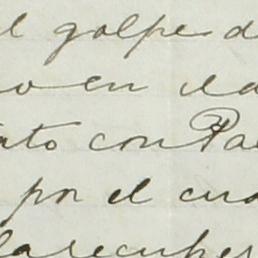 el golpe d
o en el a
ato con Pa
por el cua
la recuper